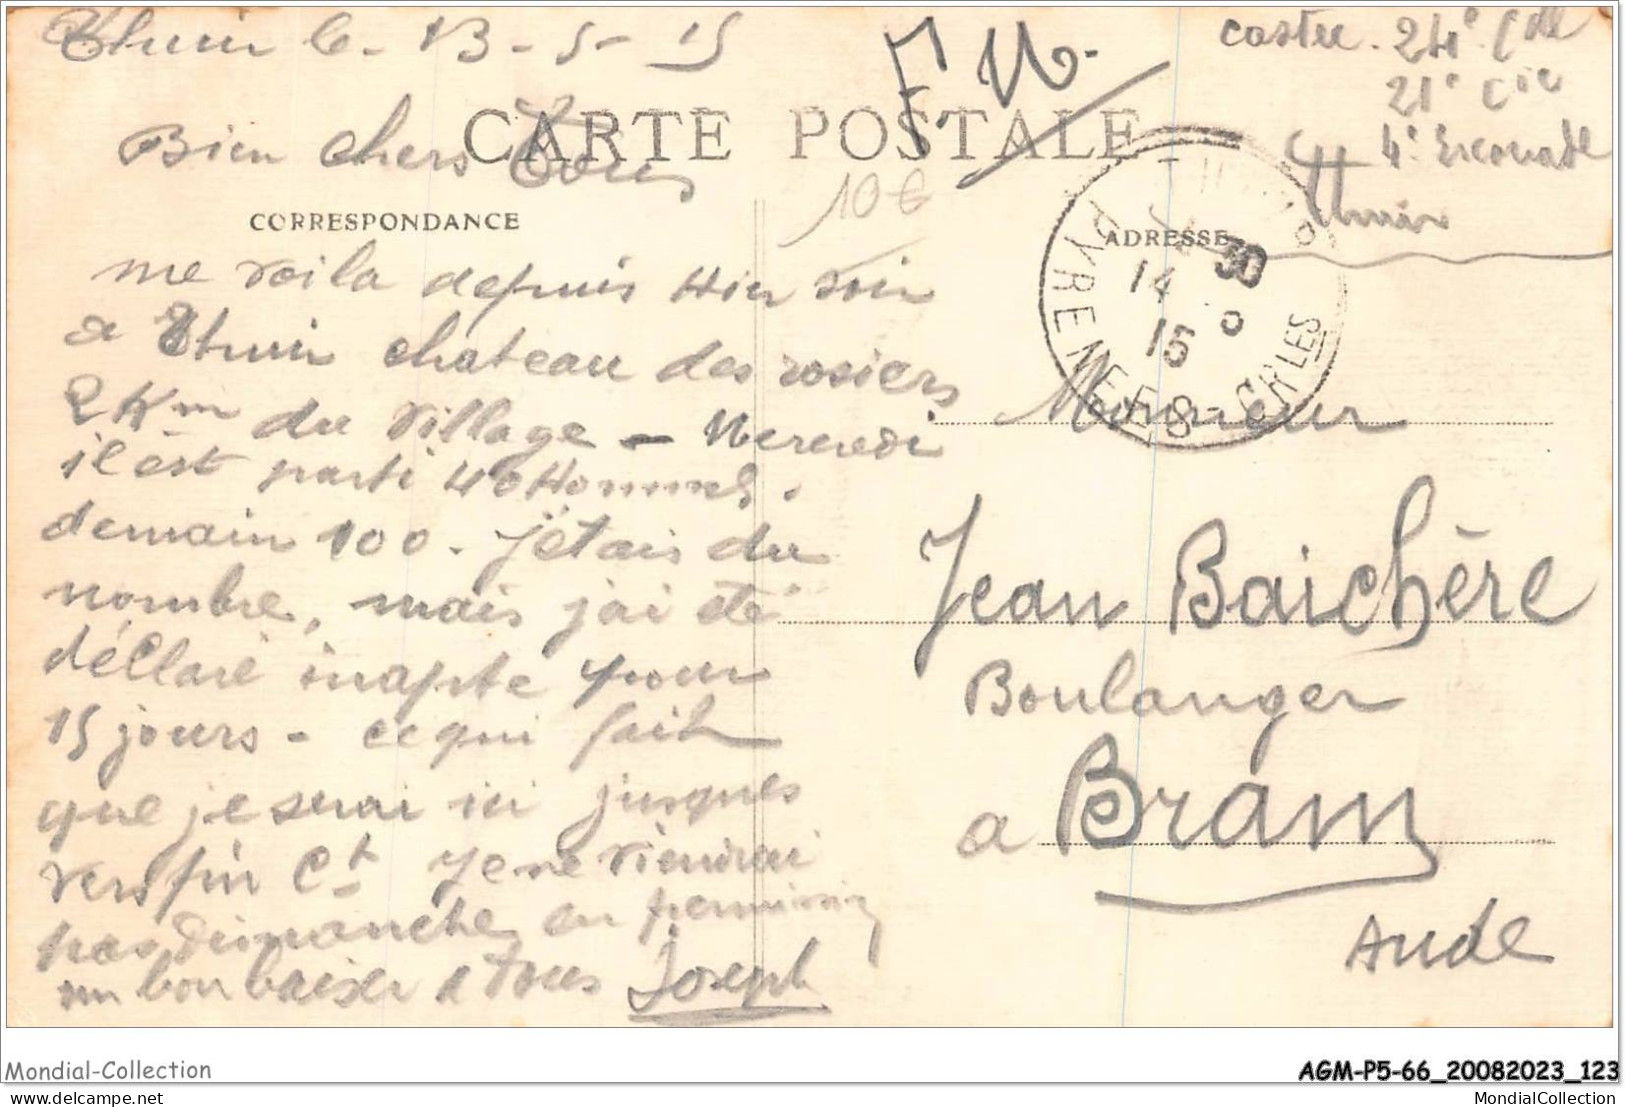 Thuir le - 13 - 5 - 15
F M.
Castre. 24e Col
21e Cie
4e Escouade
Thuir
CARTE POSTALE
Bien chers Tous
10€
CORRESPONDANCE
ADRESSE
THUIR
14 30
5
15
PYRENEES ORLES
me voila depuis Hier soir
a Thuir chateau des rosiers
2 Km du village - Mercredi
il est parti 40 Hommes.
demain 100. J'étais du
nombre, mais j'ai été
déclaré inapte pour
15 jours - ce qui fait
que je serai ici jusques
vers fin Ct. Je ne viendrai
pas dimanche en permission
un bon baiser a Tous Joseph
Monsieur
Jean Baichère
Boulanger
a Bram
Aude
Mondial-Collection
AGM-P5-66_20082023_123
delcampe.net
MondialCollection